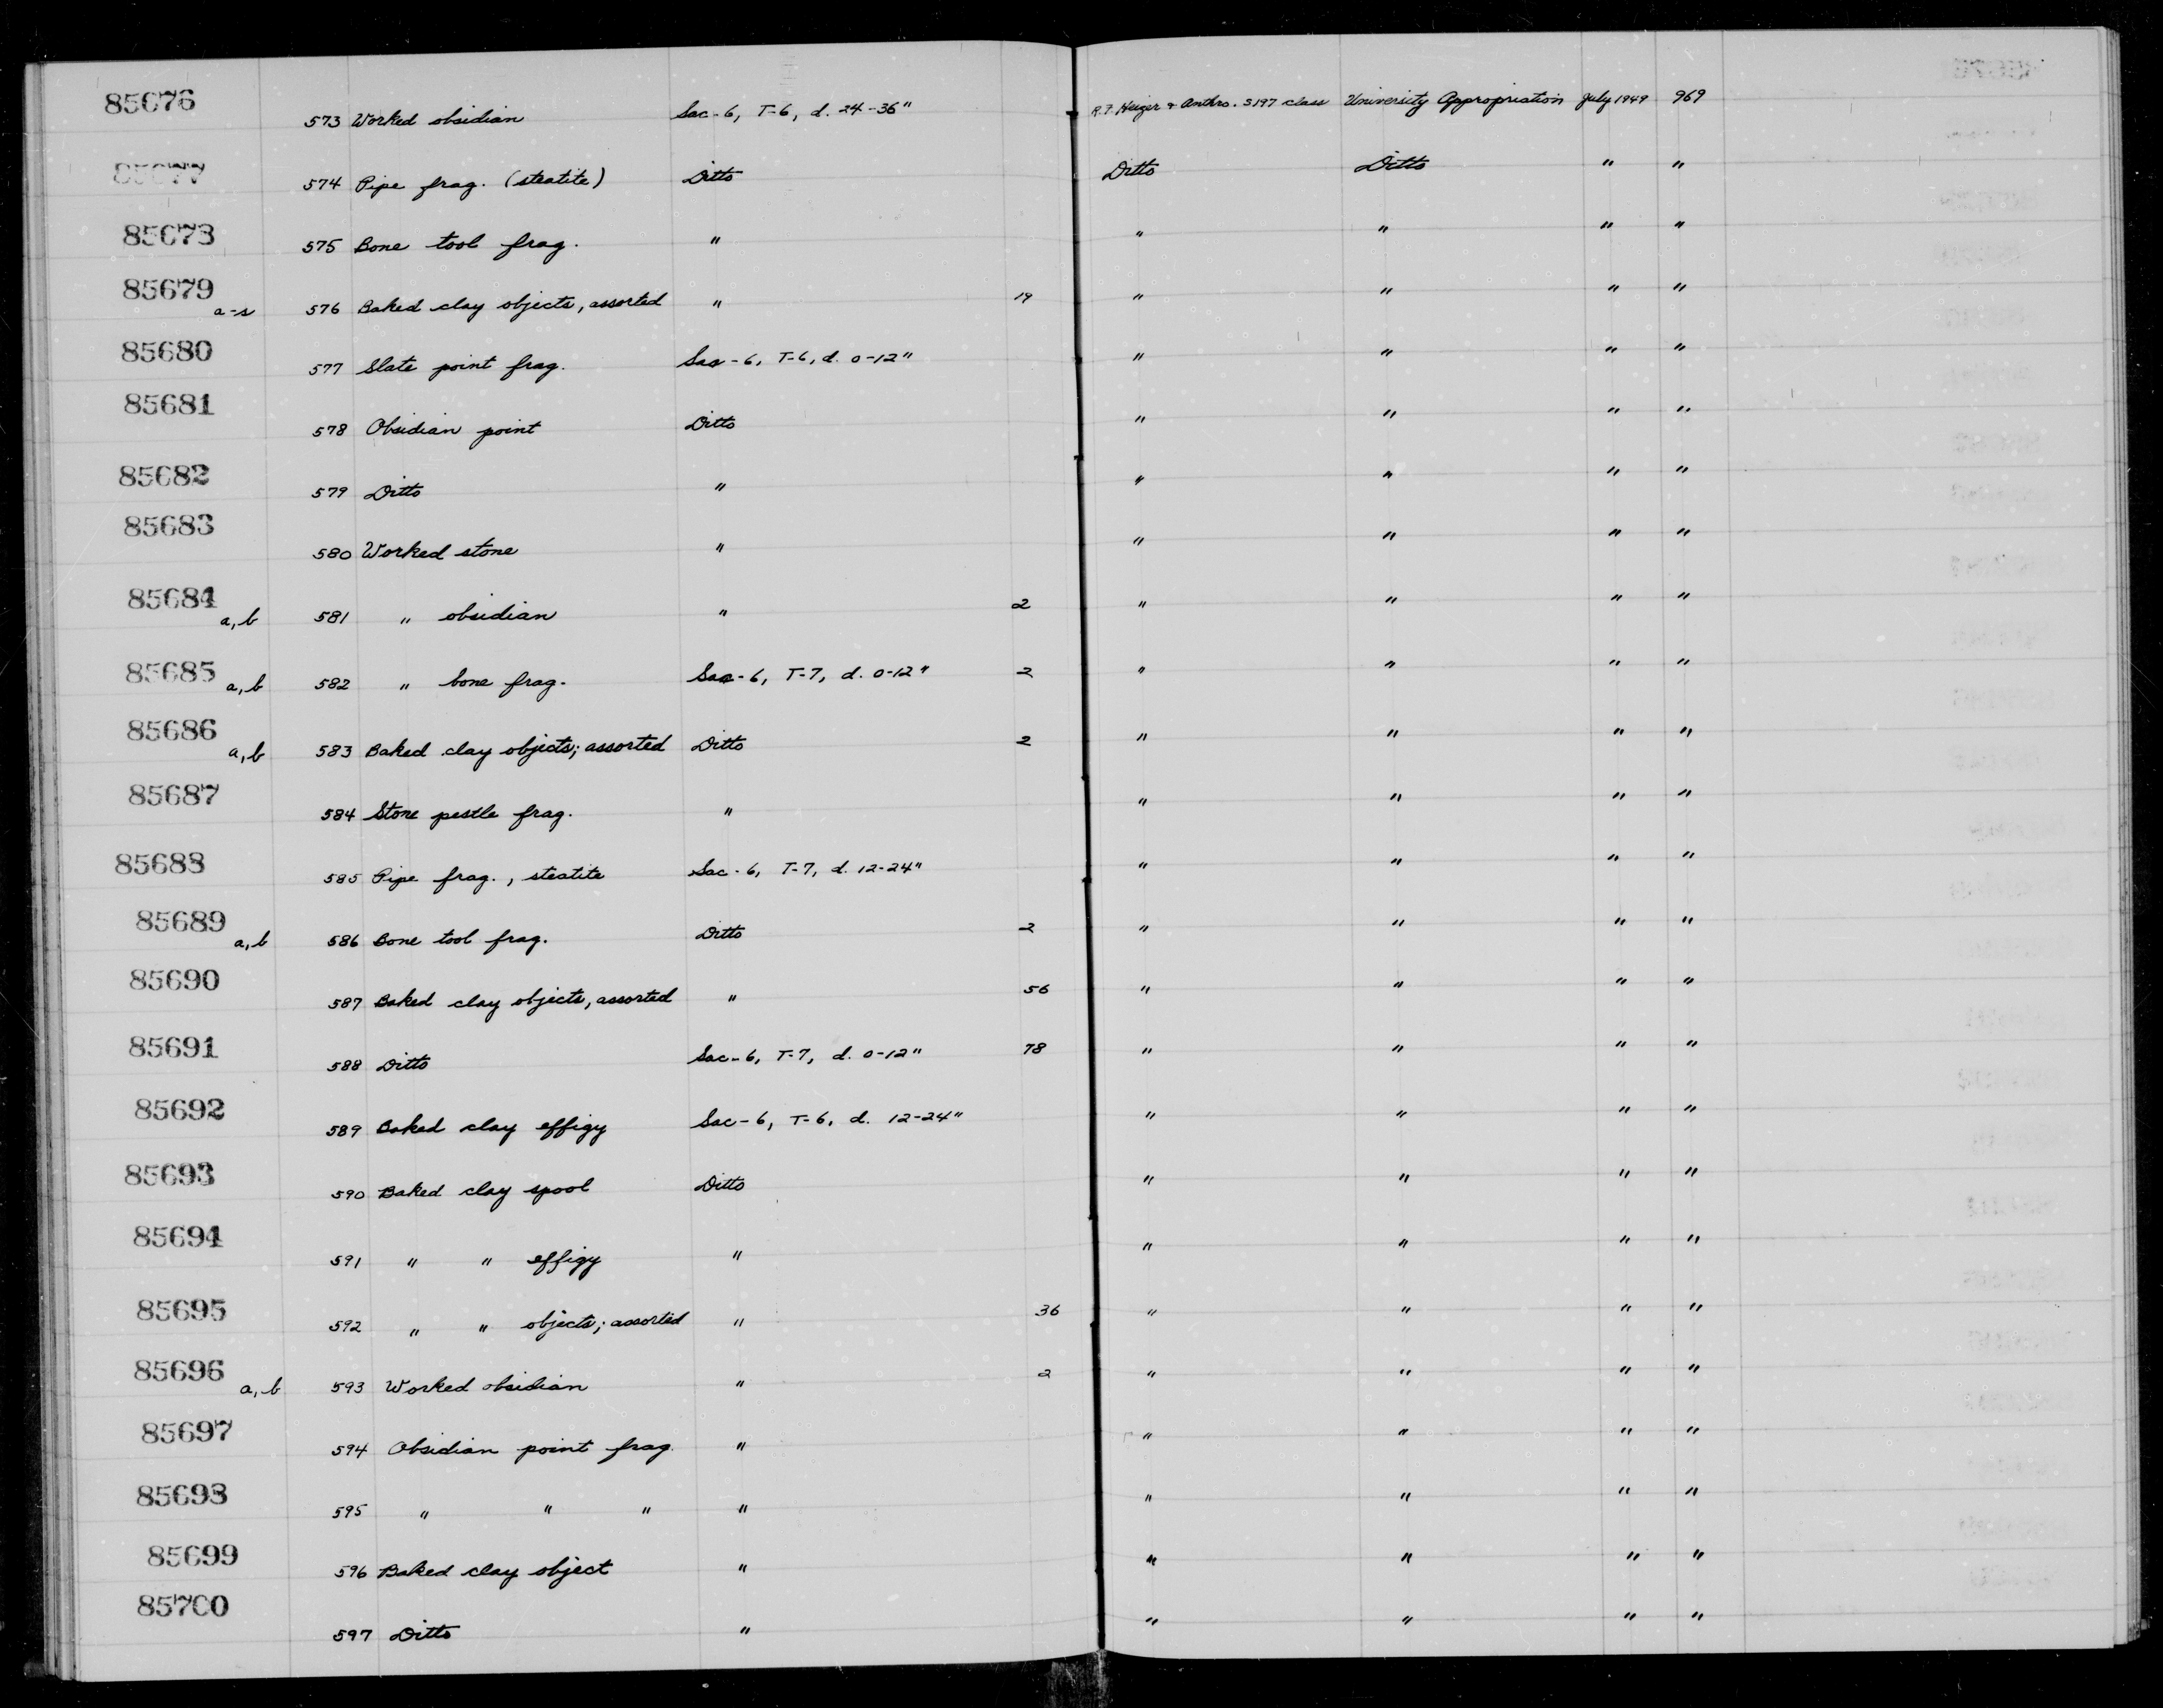 85676 573 Worked obsidian Sac-6, T-6, d. 24-36" R.F. Heizer & Anthro. S197 class University Appropriation July 1949 969
85677 574 Pipe frag. (steatite) Ditto Ditto Ditto " "
85678 575 Bone tool frag. " " " " "
85679 a-s 576 Baked clay objects, assorted " 19 " " " "
85680 577 Slate point frag. Sac-6, T-6, d. 0-12" " " " "
85681 578 Obsidian point Ditto " " " "
85682 579 Ditto " " " " "
85683 580 Worked stone " " " " "
85684 a,b 581 " obsidian " 2 " " " "
85685 a,b 582 " bone frag. Sac-6, T-7, d. 0-12" 2 " " " "
85686 a,b 583 Baked clay objects; assorted Ditto 2 " " " "
85687 584 Stone pestle frag. " " " " "
85688 585 Pipe frag., steatite Sac-6, T-7, d. 12-24" " " " "
85689 a,b 586 Bone tool frag. Ditto 2 " " " "
85690 587 Baked clay objects, assorted " 56 " " " "
85691 588 Ditto Sac-6, T-7, d. 0-12" 78 " " " "
85692 589 Baked clay effigy Sac-6, T-6, d. 12-24" " " " "
85693 590 Baked clay spool Ditto " " " "
85694 591 " " effigy " " " " "
85695 592 " " objects; assorted " 36 " " " "
85696 a,b 593 Worked obsidian " 2 " " " "
85697 594 Obsidian point frag. " " " " "
85698 595 " " " " " " " "
85699 596 Baked clay object " " " " "
85700 597 Ditto " " " " "